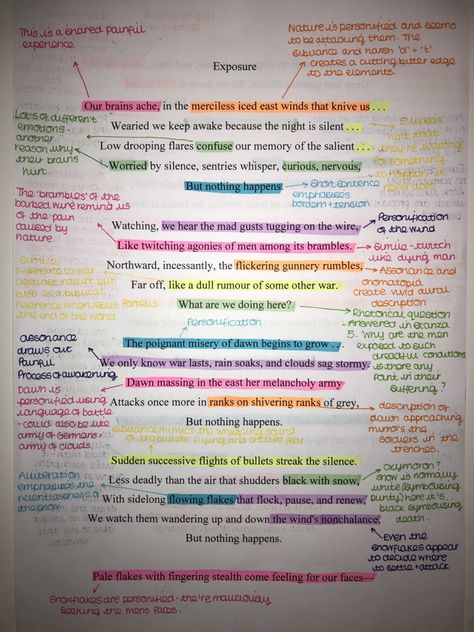 This is a shared painful
experience
Nature is personified and seems
to be attacking them. The
sibilance and harsh 'd' + 't'
creates a cutting bitter edge
to the elements.
Exposure
Our brains ache, in the merciless iced east winds that knive us . . .
Wearied we keep awake because the night is silent . . .
Low drooping flares confuse our memory of the salient . . .
Worried by silence, sentries whisper, curious, nervous,
But nothing happens.
Lots of different
emotions -
another
reason why
their brains
hurt
Ellipses
hint that
they're waiting
for something
to happen
Short sentence
emphasises
boredom + tension
The 'brambles' of the
barbed wire remind us
of the pain
caused by
nature
Watching, we hear the mad gusts tugging on the wire,
Like twitching agonies of men among its brambles.
Northward, incessantly, the flickering gunnery rumbles,
Far off, like a dull rumour of some other war.
What are we doing here?
Personification
of the wind
Simile - twitch
like dying man
Assonance and
onomatopoeia
create vivid aural
description
reference to war
against nature but
also is a biblical
reference when
the end of the world
Rhetorical question
- Answered in stanza
5. Why are the men
exposed to such
dreadful conditions
is there any
point in their
suffering?
Personification
The poignant misery of dawn begins to grow . . .
We only know war lasts, rain soaks, and clouds sag stormy.
Dawn massing in the east her melancholy army
Attacks once more in ranks on shivering ranks of grey,
But nothing happens.
assonance
draws out
painful
process of awakening
Dawn is
personified using
language of battle
- could also be the
army of Germans or
army of clouds.
description
of dawn approaching
mirrors the
soldiers in the
trenches.
Sibilance mimics the whistling sound
of the bullets flying and creates fear
Sudden successive flights of bullets streak the silence.
Less deadly than the air that shudders black with snow,
With sidelong flowing flakes that flock, pause, and renew,
We watch them wandering up and down the wind's nonchalance,
But nothing happens.
Alliteration
emphasises the
relentlessness of
the snow.
oxymoron?
snow is normally
white (symbolising
purity) here it's
black symbolising
death.
Even the
snowflakes appear
to decide where
to settle + attack
Pale flakes with fingering stealth come feeling for our faces—
Snowflakes are personified - the're maliciously
seeking the mens faces.